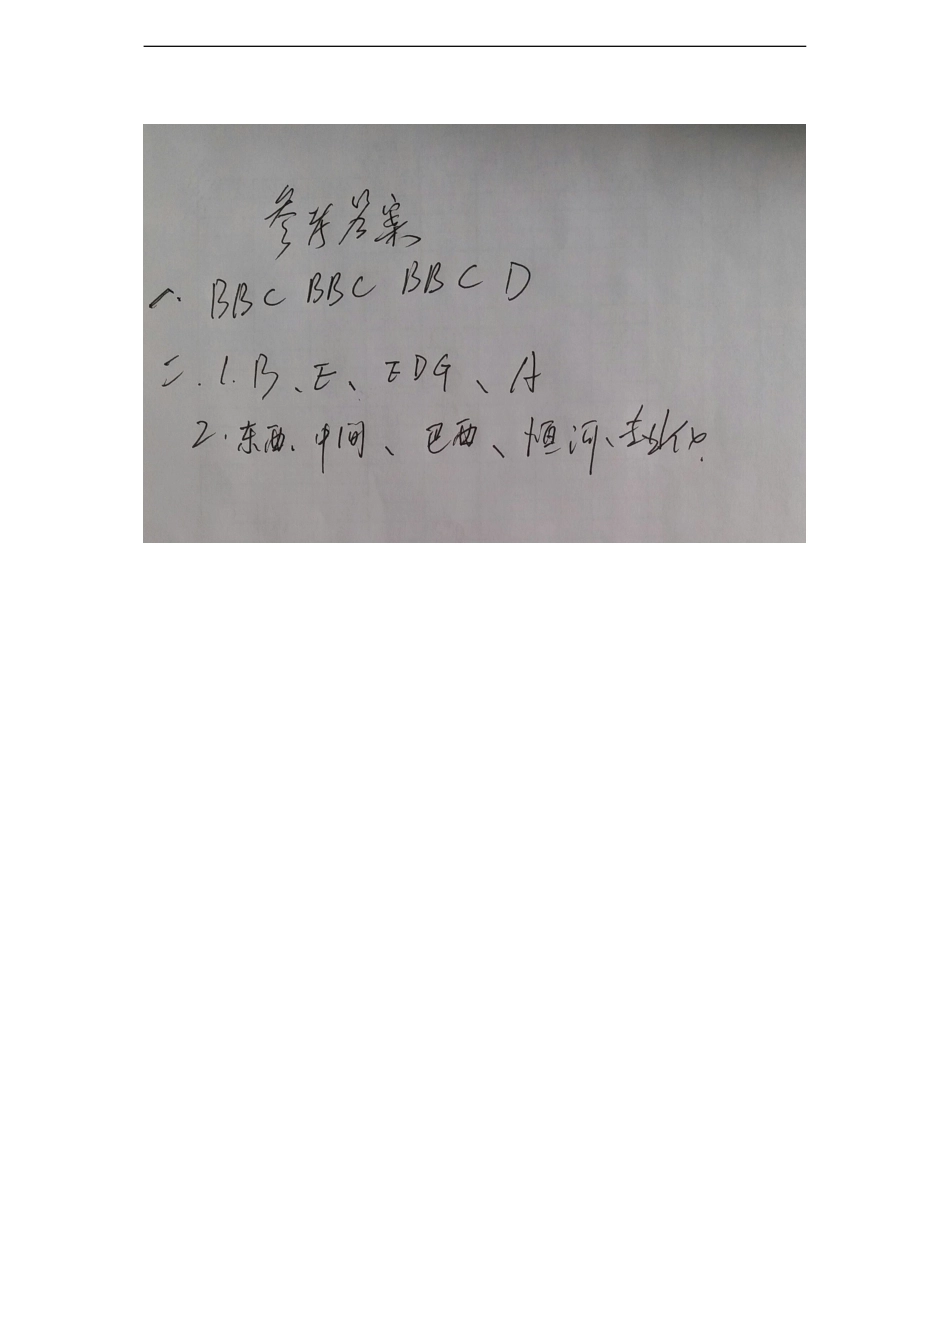 参考答案
一. BBC BBC BBC D
二. 1. B、E、EDG、A
2. 东西、中间、巴西、恒河、